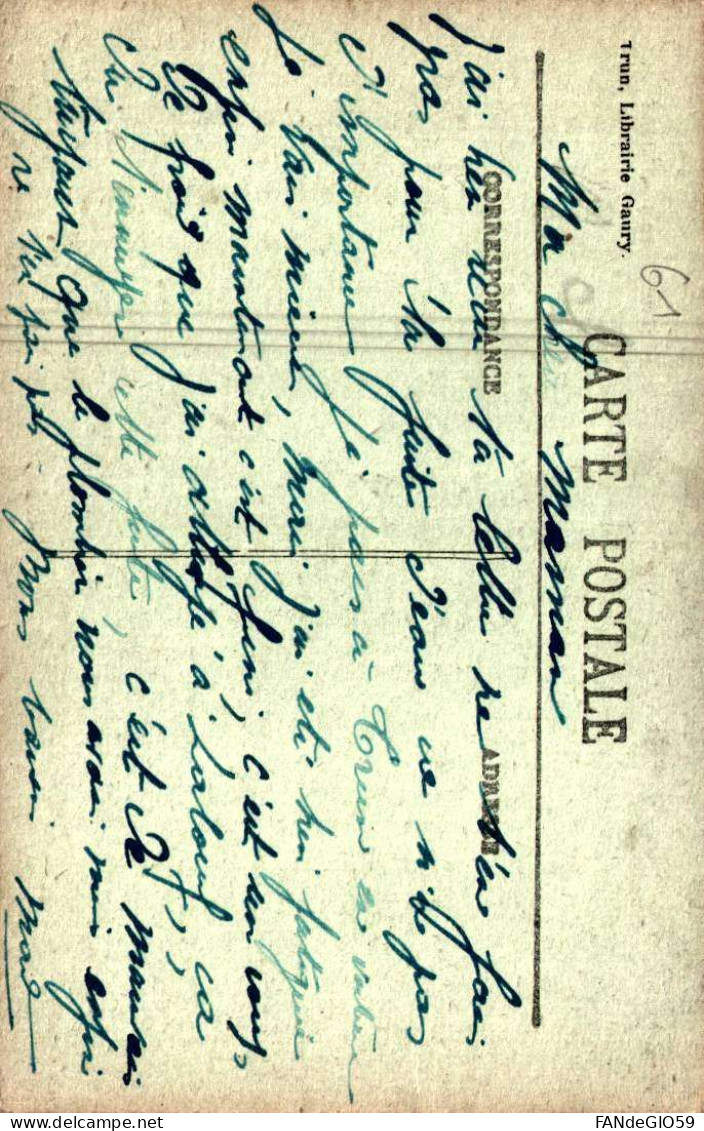 Trun, Librairie Gaury.
61
CARTE POSTALE
CORRESPONDANCE
ADRESSE
Ma chère maman
J'ai bien reçu ta lettre ne t'en fais
pas pour la fuite d'eau ce n'est pas
d'importance j'ai passé à Trun en voiture
La vais mieux, mais j'ai été bien fatiguée
enfin maintenant c'est fini, c'est un coup
de froid que j'ai attrapé à ça
du cette fuite, c'est de mauvais
que le plombier nous avait mis enfin
ne t'en fais pas, Bons baisers
FANdeGIO59